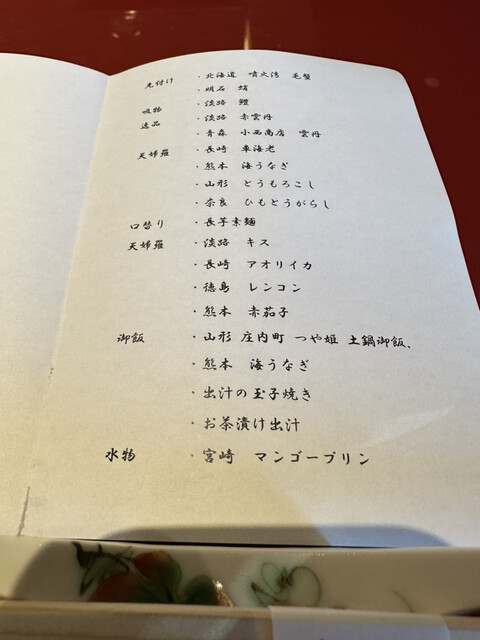 先付け ・北海道 噴火湾 毛蟹
・明石 蛸
吸物 ・淡路 鱧
逸品 ・淡路 赤雲丹
・青森 小西商店 雲丹
天婦羅 ・長崎 車海老
・熊本 海うなぎ
・山形 とうもろこし
・奈良 ひもとうがらし
口替り ・長芋素麺
天婦羅 ・淡路 キス
・長崎 アオリイカ
・徳島 レンコン
・熊本 赤茄子
御飯 ・山形 庄内町 つや姫 土鍋御飯、
・熊本 海うなぎ
・出汁の玉子焼き
・お茶漬け出汁
水物 ・宮崎 マンゴープリン